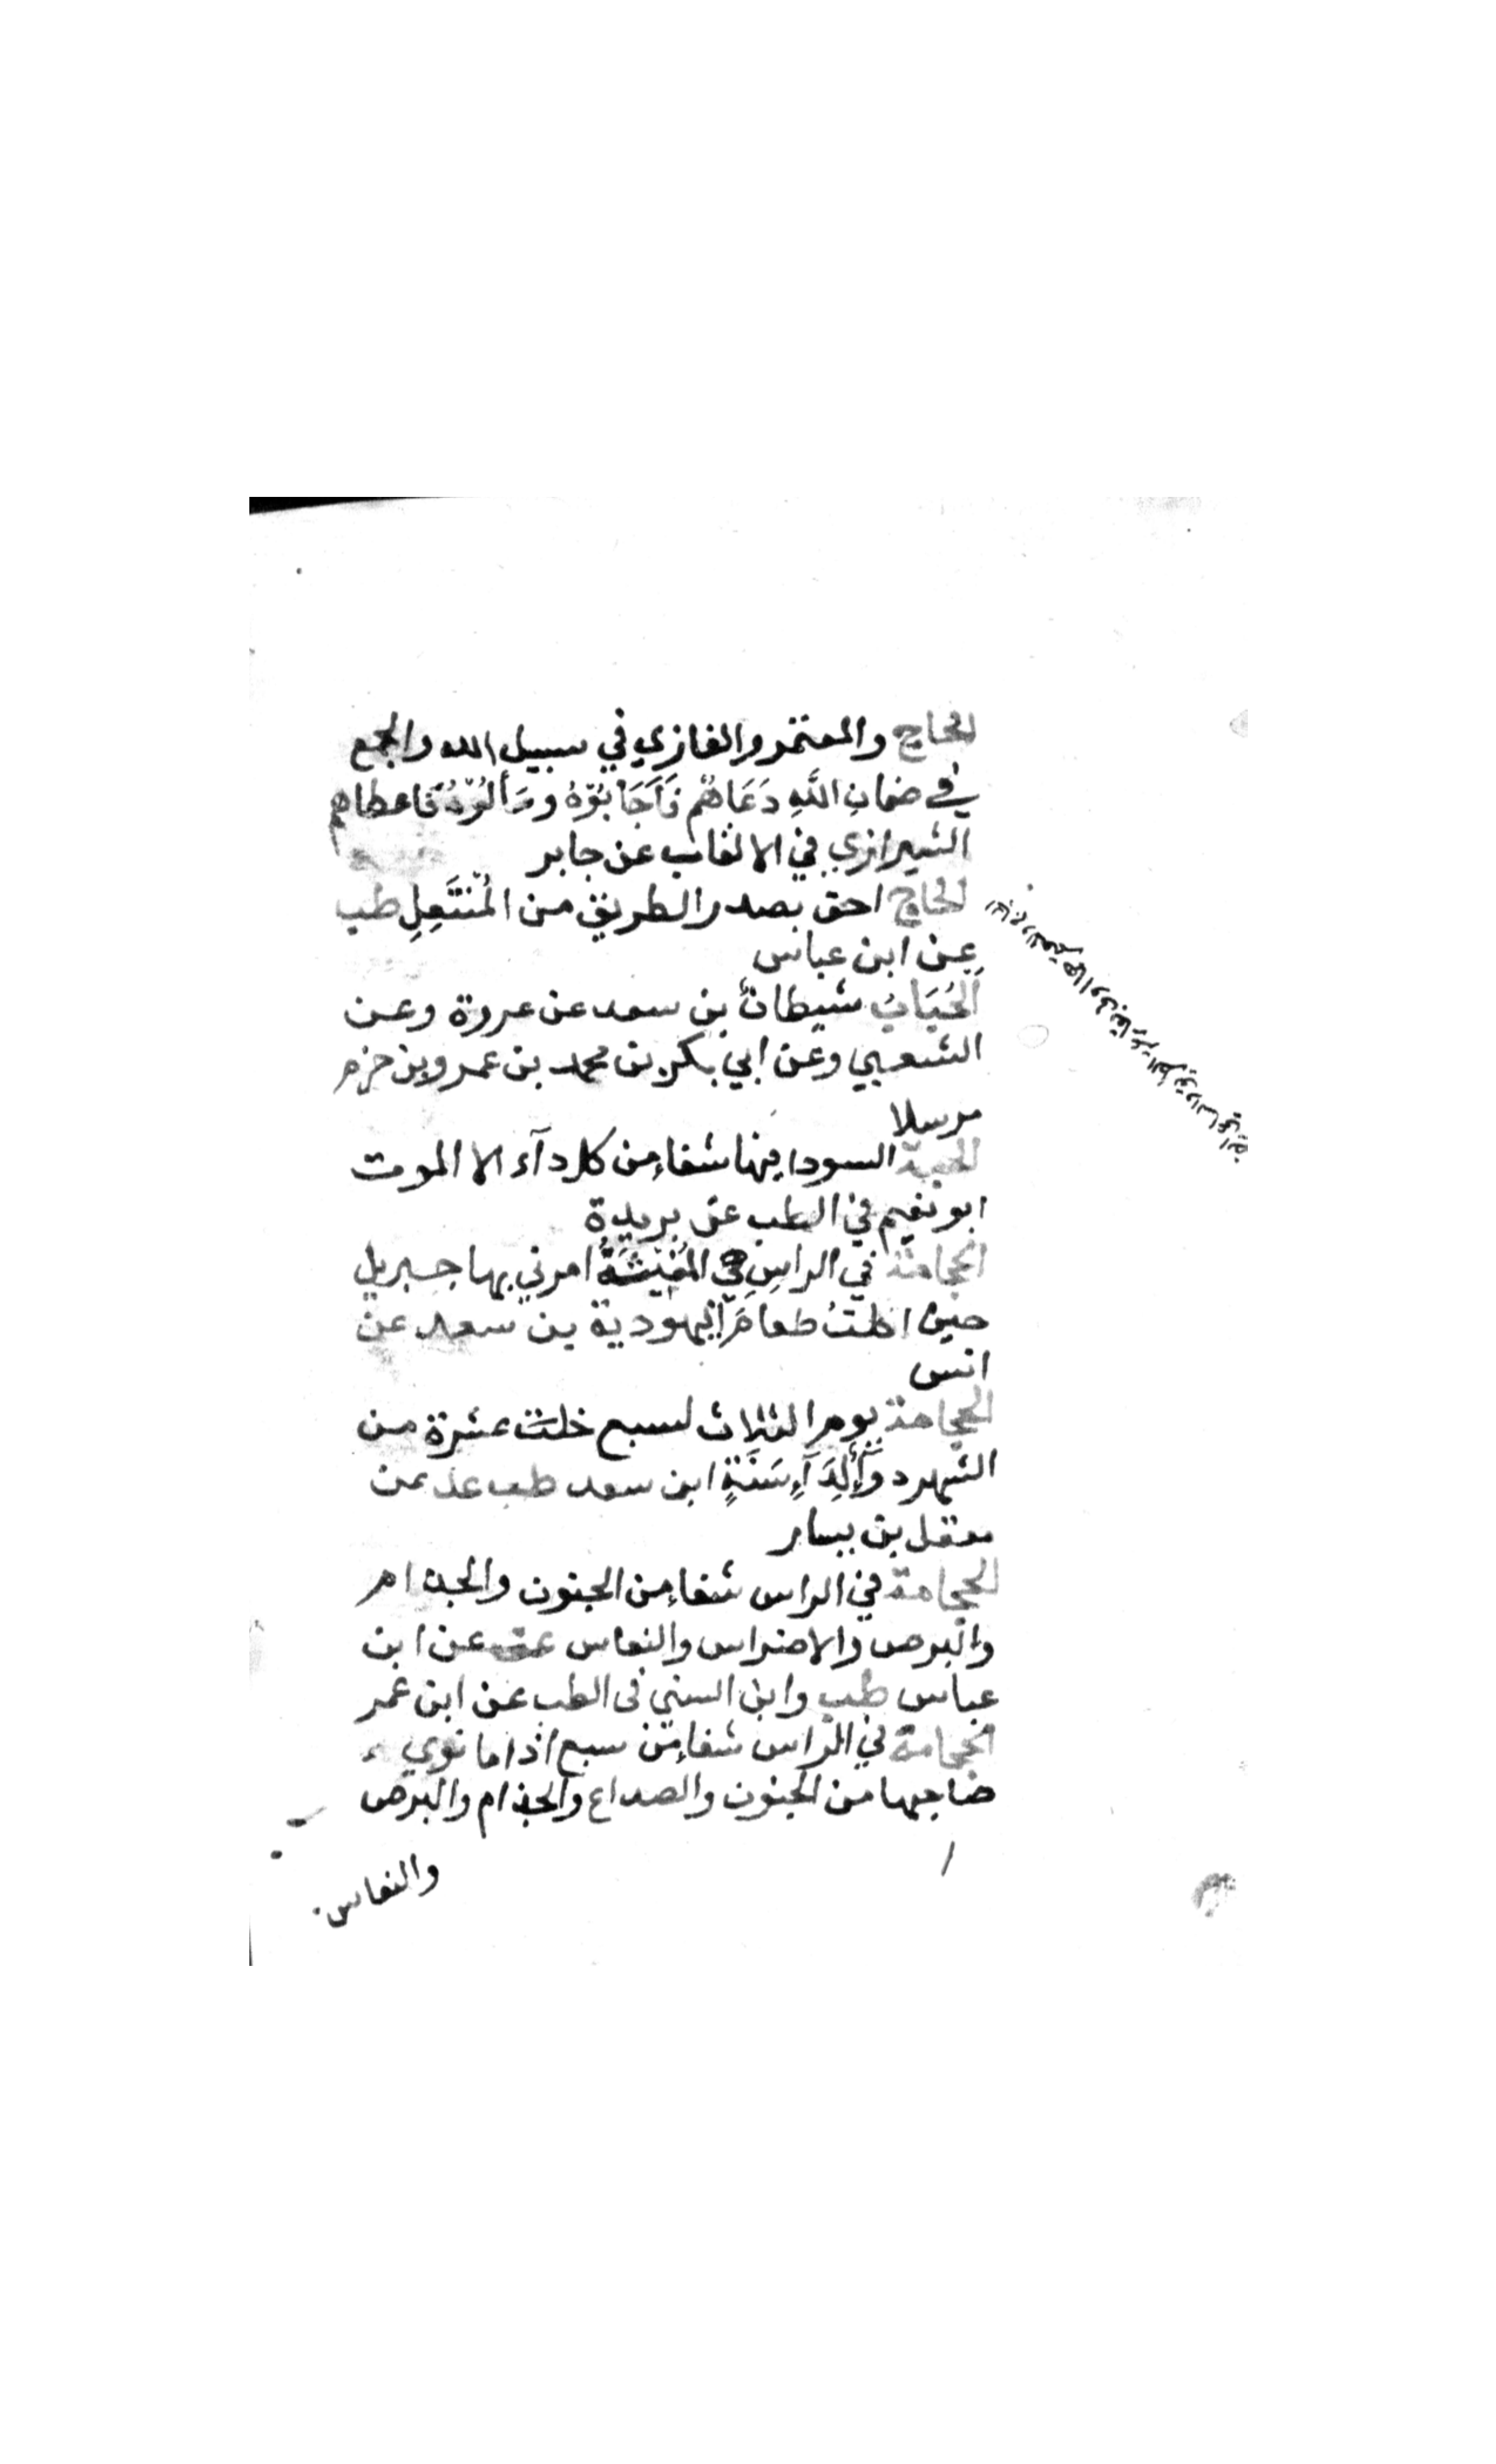 الحاج والمعتمر والغازي في سبيل الله والمجمع
في ضمان اللَّهِ دَعَاهُمْ فَأَجَابُوْهُ وسَألُوْهُ فَاعطاهم
الشيرازي في الالقاب عن جابر
الحاج احق بصدر الطريق من المُنْتَعِلِ طب
عن ابن عباس
الحُبَابُ شيطانٌ بن سعد عن عروة وعن
الشعبي وعن ابي بكر بن محمد بن عمرو بن حزم
مرسلا
الحبة السودا فيها شفاء من كل دآء الا الموت
ابو نعيم في الطب عن بريدة
الحجامة في الراسِ هي المُغِيْثَةُ امرني بها جبريل
حين اكلتُ طعامَ اليهودية بن سعد عن
انس
الحجامة يوم الثلاث لسبع خلت عشرة من
الشهر دوَآءٌ لِدَآءِ سَنَةٍ ابن سعد طب عد عن
معقل بن يسار
الحجامة في الراس شفاء من الجنون والجذام
والبرص والاضراس والنعاس عق عن ابن
عباس طب وابن السني في الطب عن ابن عمر
الحجامة في الراس شفاء من سبع اذا ما نوي
صاحبها من الجنون والصداع والجذام والبرص
والنعاس